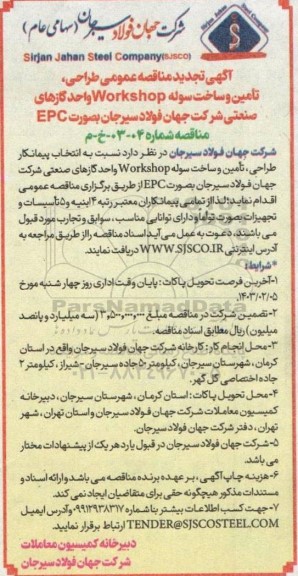 شرکت جهان فولاد سیرجان (سهامی عام)
Sirjan Jahan Steel Company(SJSCO)
آگهی تجدید مناقصه عمومی طراحی،
تامین و ساخت سوله Workshop واحد گازهای
صنعتی شرکت جهان فولاد سیرجان بصورت EPC
مناقصه شماره ۰۴-۰۳-خ-م
شرکت جهان فولاد سیرجان در نظر دارد نسبت به انتخاب پیمانکار
طراحی، تأمین و ساخت سوله Workshop واحد گازهای صنعتی شرکت
جهان فولاد سیرجان بصورت EPC از طریق برگزاری مناقصه عمومی
اقدام نماید؛ لذا از تمامی پیمانکاران معتبر رتبه ۴ ابنیه و ۵ تأسیسات و
تجهیزات بصورت توأما و دارای توانایی مناسب، سوابق و تجارب مورد قبول
می باشند، دعوت به عمل می آید اسناد مناقصه را از طریق مراجعه به
آدرس اینترنتی WWW.SJSCO.IR دریافت نمایند.
*شرایط:
۱-آخرین فرصت تحویل پاکات: پایان وقت اداری روز چهار شنبه مورخ
۱۴۰۳/۰۲/۰۵
۲-تضمین شرکت در مناقصه مبلغ ۳،۵۰۰،۰۰۰،۰۰۰ (سه میلیارد و پانصد
میلیون) ریال مطابق اسناد مناقصه.
۳-محل انجام کار: کارخانه شرکت جهان فولاد سیرجان واقع در استان
کرمان، شهرستان سیرجان، کیلومتر ۵۰ جاده سیرجان-شیراز، کیلومتر ۲
جاده اختصاصی گل گهر.
۴-محل تحویل پاکات: استان کرمان، شهرستان سیرجان، دبیرخانه
کمیسیون معاملات شرکت جهان فولاد سیرجان و استان تهران، شهر
تهران، دفتر شرکت جهان فولاد سیرجان.
۵-شرکت جهان فولاد سیرجان در قبول یا رد هر یک از پیشنهادات مختار
می باشد.
۶-هزینه چاپ آگهی، بر عهده برنده مناقصه می باشد و ارائه اسناد و
مستندات مذکور هیچگونه حقی برای متقاضیان ایجاد نمی کند.
۷-جهت کسب اطلاعات بیشتر با شماره ۰۹۹۱۲۹۳۸۳۱۷ و آدرس ایمیل
TENDER@SJSCOSTEEL.COM ارتباط برقرار نمایید.
دبیرخانه کمیسیون معاملات
شرکت جهان فولاد سیرجان